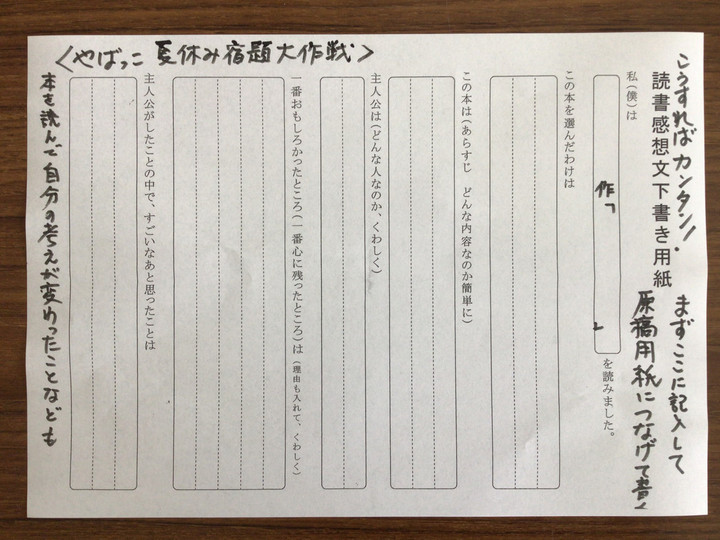 〈やばっこ 夏休み宿題大作戦〉
こうすれば カンタン!
まずここに記入して
原稿用紙につなげて書く
読書感想文下書き用紙
私(僕)は
作「
」
を読みました。
この本を選んだわけは
この本は(あらすじ どんな内容なのか簡単に)
主人公は(どんな人なのか、くわしく)
一番おもしろかったところ(一番心に残ったところ)は(理由も入れて、くわしく)
主人公がしたことの中で、すごいなあと思ったことは
本を読んで自分の考えが変わったことなども